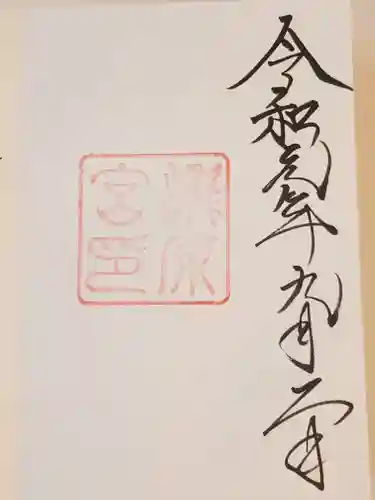 令和元年九月二日
原
宮印